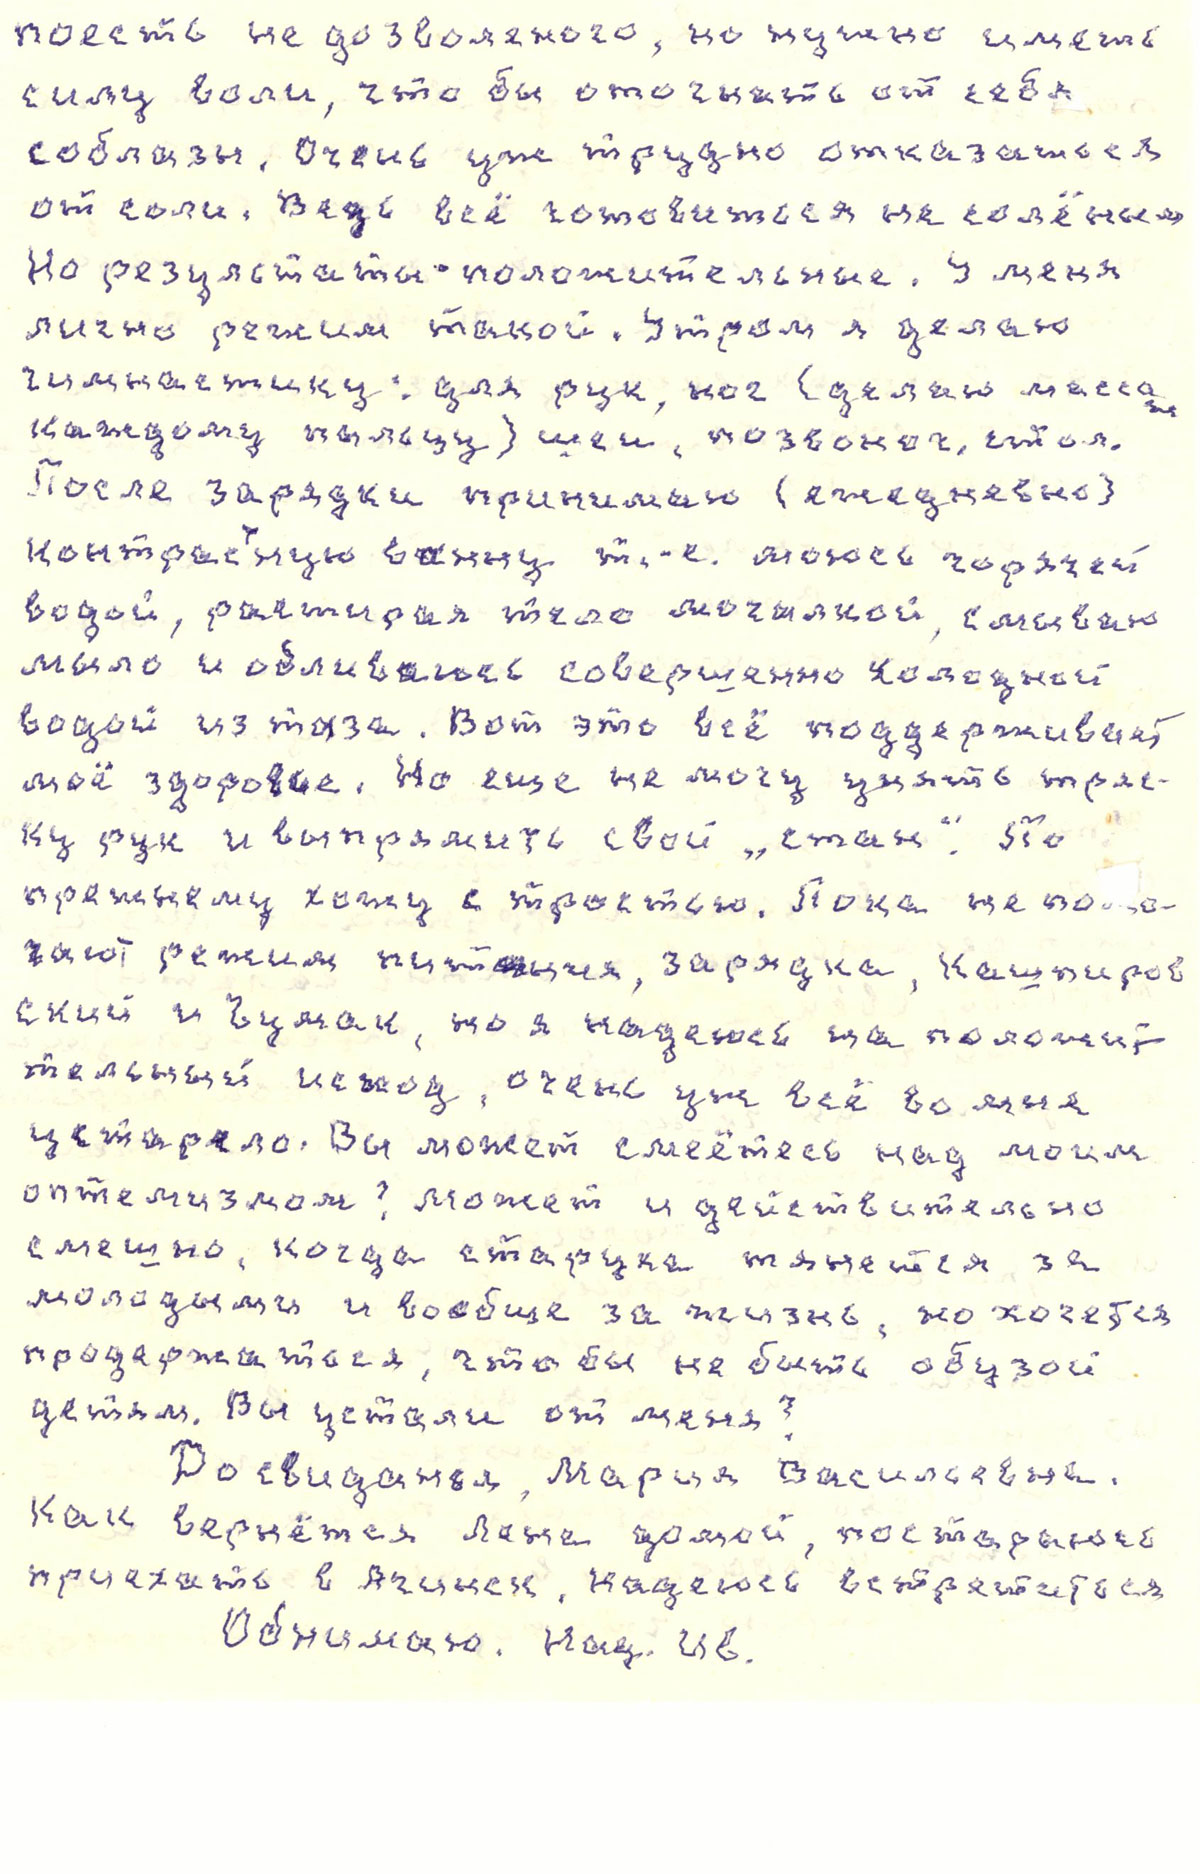 поесть не дозволеного, но нужно иметь
силу воли, что бы отогнать от себя
соблазы. Очень уже трудно отказаться
от соли. Ведь всё готовиться не солёным
Но результаты положительные. У меня
лично режим такой. Утром я делаю
гимнастику: для рук, ног (делаю массаж
каждому пальцу) шеи, позвоноч. стол.
После зарядки принимаю (ежедневно)
контрастную ванну т.-е. моюсь горячей
водой, растирая тело мочалкой, смываю
мыло и обливаюсь совершенно холодной
водой из таза. Вот это всё поддерживает
моё здоровье. Но еще не могу унять тряс-
ку рук и выпрямить свой „стан“. По
прежнему хожу с тростью. Пока не помо-
гают режим питания, зарядка, Кашпиров
ский и Чумак, но я надеюсь на положит
тельный исход, очень уже всё во мне
устарело. Вы может смеётесь над моим
оптемизмом? Может и действительно
смешно, когда старуха тянется за
молодыми и вообще за жизнь, но хочется
продержаться, что бы не быть обузой
детям. Вы устали от меня?
До свиданья, Мария Васильевна.
Как вернётся Лена домой, постараюсь
приехать в Ачинск. Надеюсь встретиться
Обнимаю. Над. Ив.